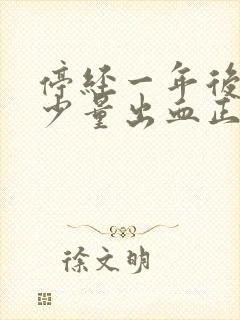 停經一年後
少量出血正
徐文明